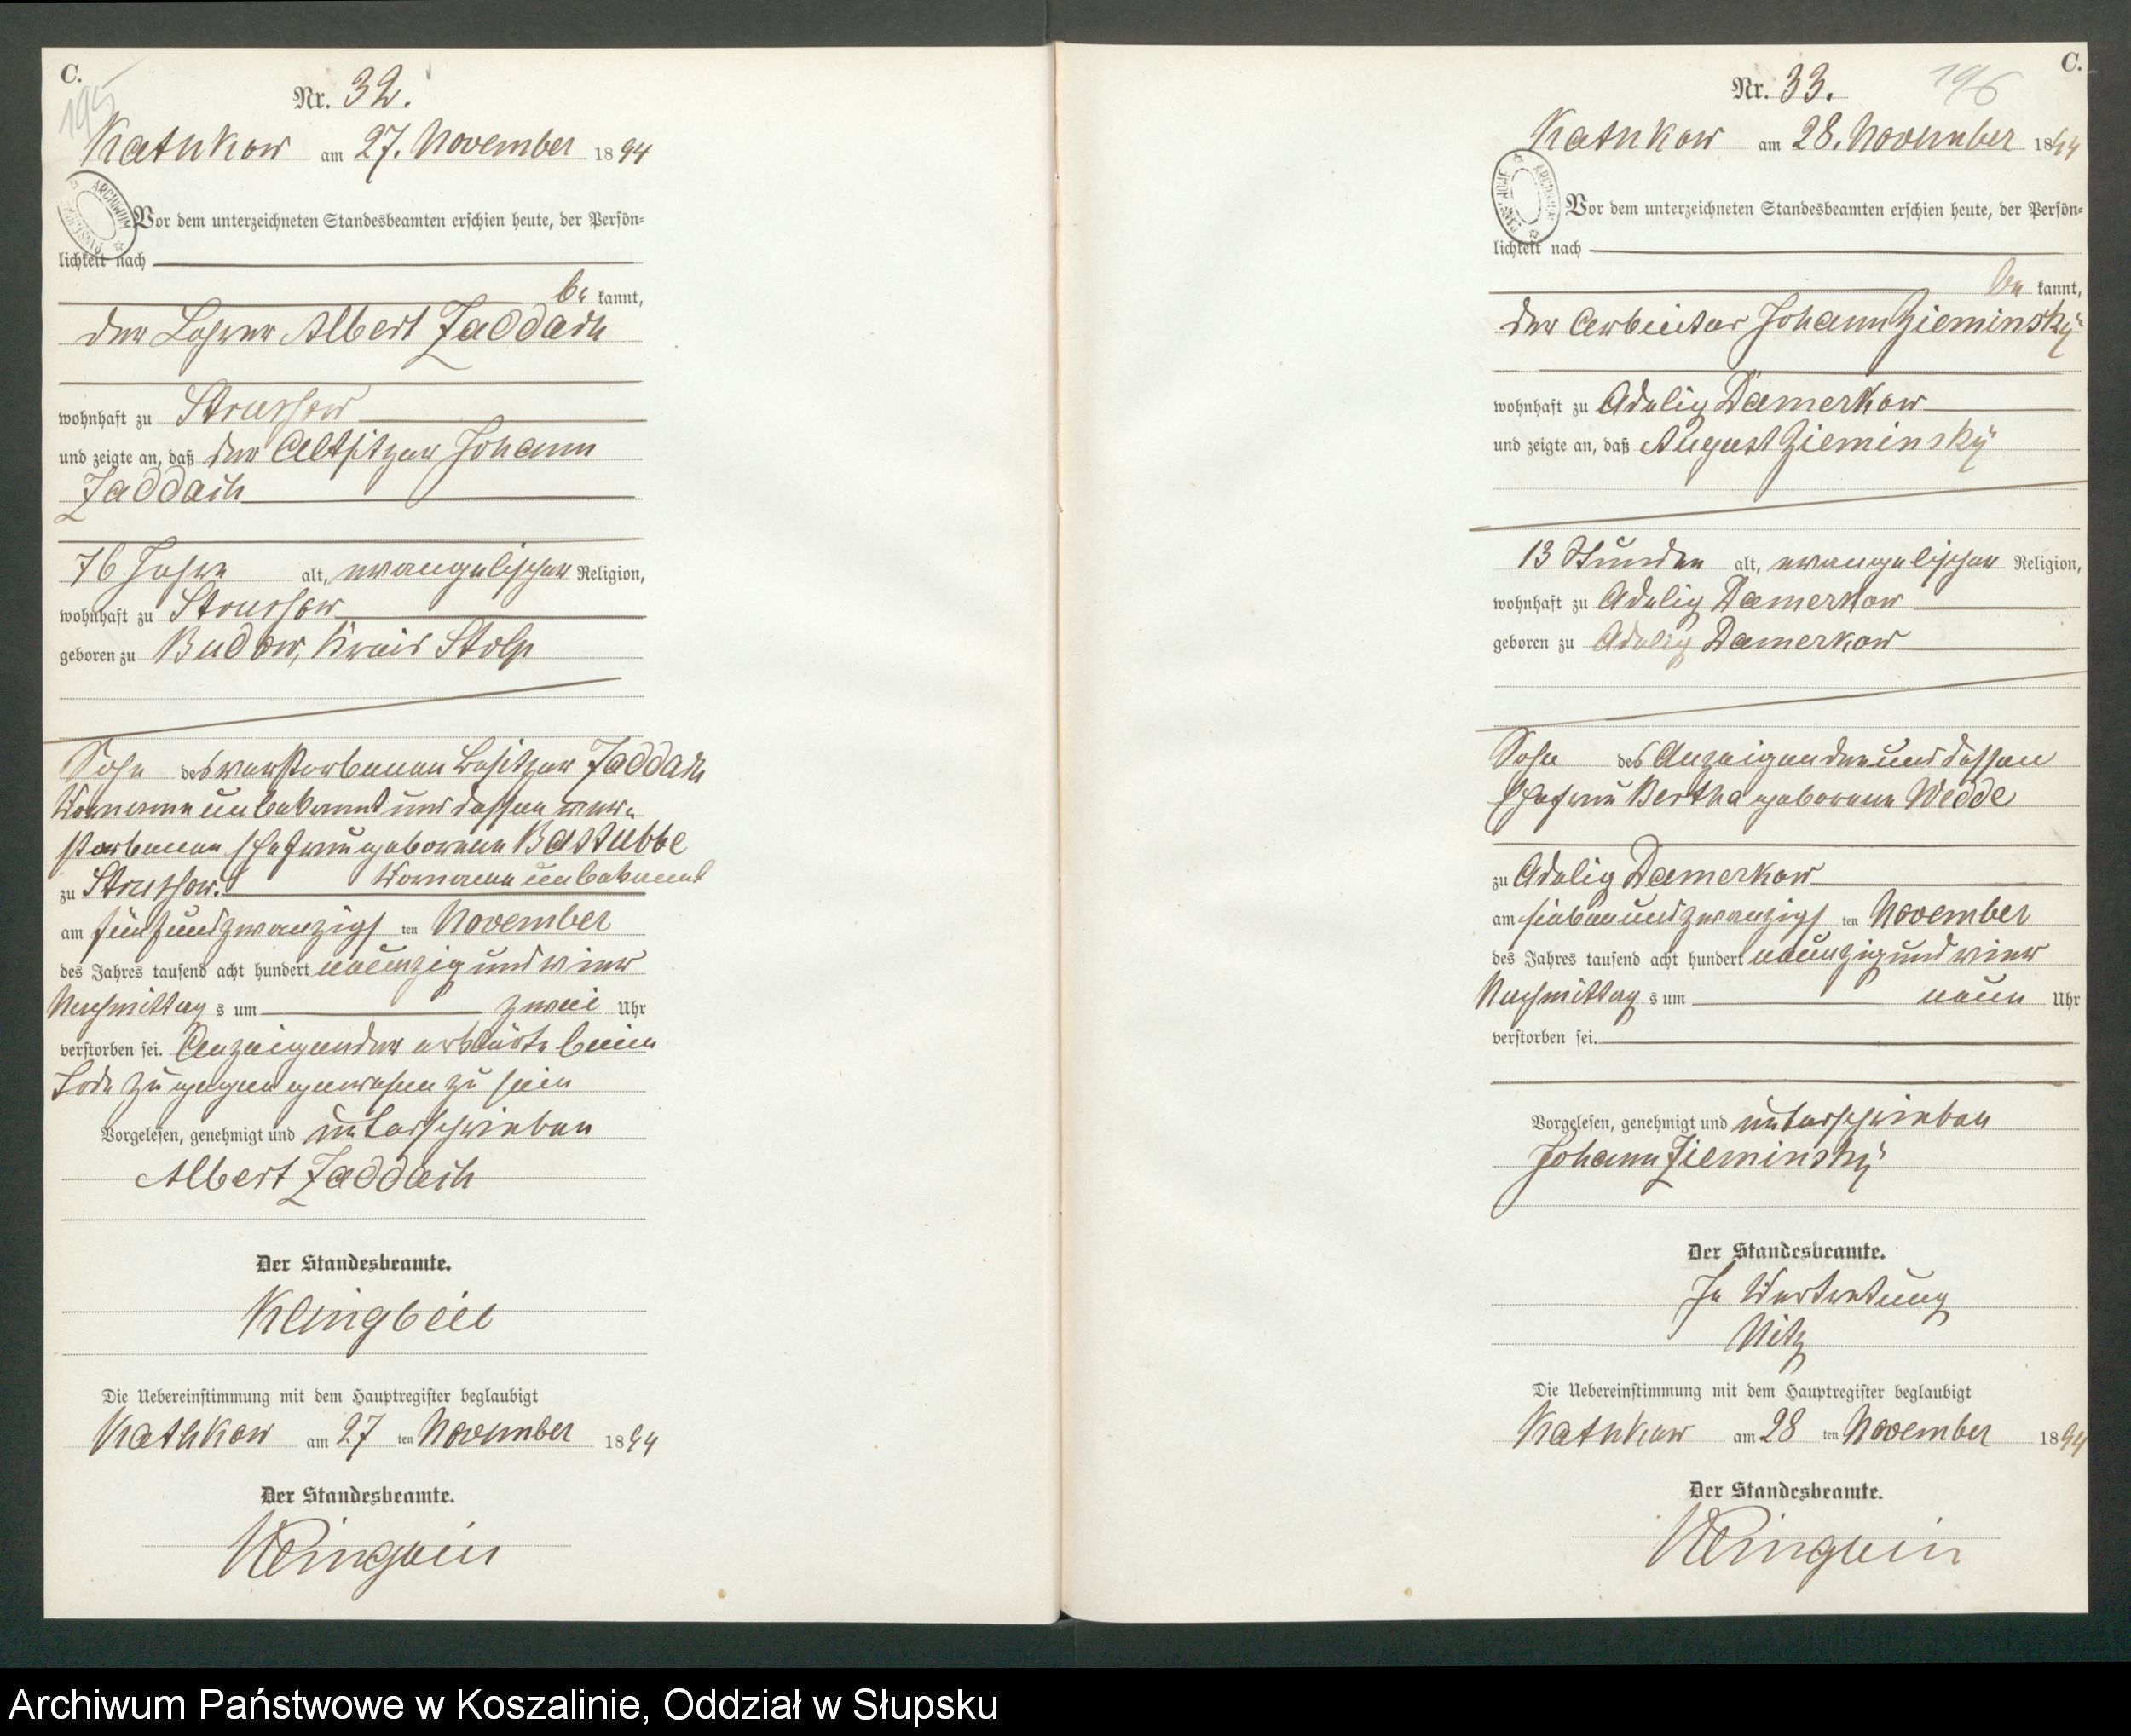 C.
195
Nr. 32.
Kathkow am 27. November 1894
ARCHIWUM PAŃSTWOWE
Vor dem unterzeichneten Standesbeamten erschien heute, der Persön-
lichkeit nach
be kannt,
der Lehrer Albert Zaddach
wohnhaft zu Strussow
und zeigte an, daß der Altsitzer Johann
Zaddach
76 Jahre alt, evangelischer Religion,
wohnhaft zu Strussow
geboren zu Budow, Kreis Stolp
Sohn des verstorbenen Besitzer Zaddach
Vorname unbekannt und dessen ver-
storbenen Ehefrau geborene Bastubbe
zu Strussow. Vorname unbekannt
am fünfundzwanzigs ten November
des Jahres tausend acht hundert neunzig und vier
Nachmittag s um zwei Uhr
verstorben sei. Anzeigender erklärte beim
Tode zugegen gewesen zu sein
Vorgelesen, genehmigt und unterschrieben
Albert Zaddach
Der Standesbeamte.
Klingbeil
Die Uebereinstimmung mit dem Hauptregister beglaubigt
Kathkow am 27 ten November 1894
Der Standesbeamte.
Klingbeil
C.
196
Nr. 33.
Kathkow am 28. November 1894
ARCHIWUM PAŃSTWOWE
Vor dem unterzeichneten Standesbeamten erschien heute, der Persön-
lichkeit nach
be kannt,
der Arbeiter Johann Zieminsky
wohnhaft zu Adelig Damerkow
und zeigte an, daß August Zieminsky
13 Stunden alt, evangelischer Religion,
wohnhaft zu Adelig Damerkow
geboren zu Adelig Damerkow
Sohn des Anzeigenden und dessen
Ehefrau Bertha geborene Wedde
zu Adelig Damerkow
am siebenundzwanzigs ten November
des Jahres tausend acht hundert neunzig und vier
Nachmittag s um neun Uhr
verstorben sei.
Vorgelesen, genehmigt und unterschrieben
Johann Zieminsky
Der Standesbeamte.
In Vertretung
Nitz
Die Uebereinstimmung mit dem Hauptregister beglaubigt
Kathkow am 28 ten November 1894
Der Standesbeamte.
Klingbeil
Archiwum Państwowe w Koszalinie, Oddział w Słupsku